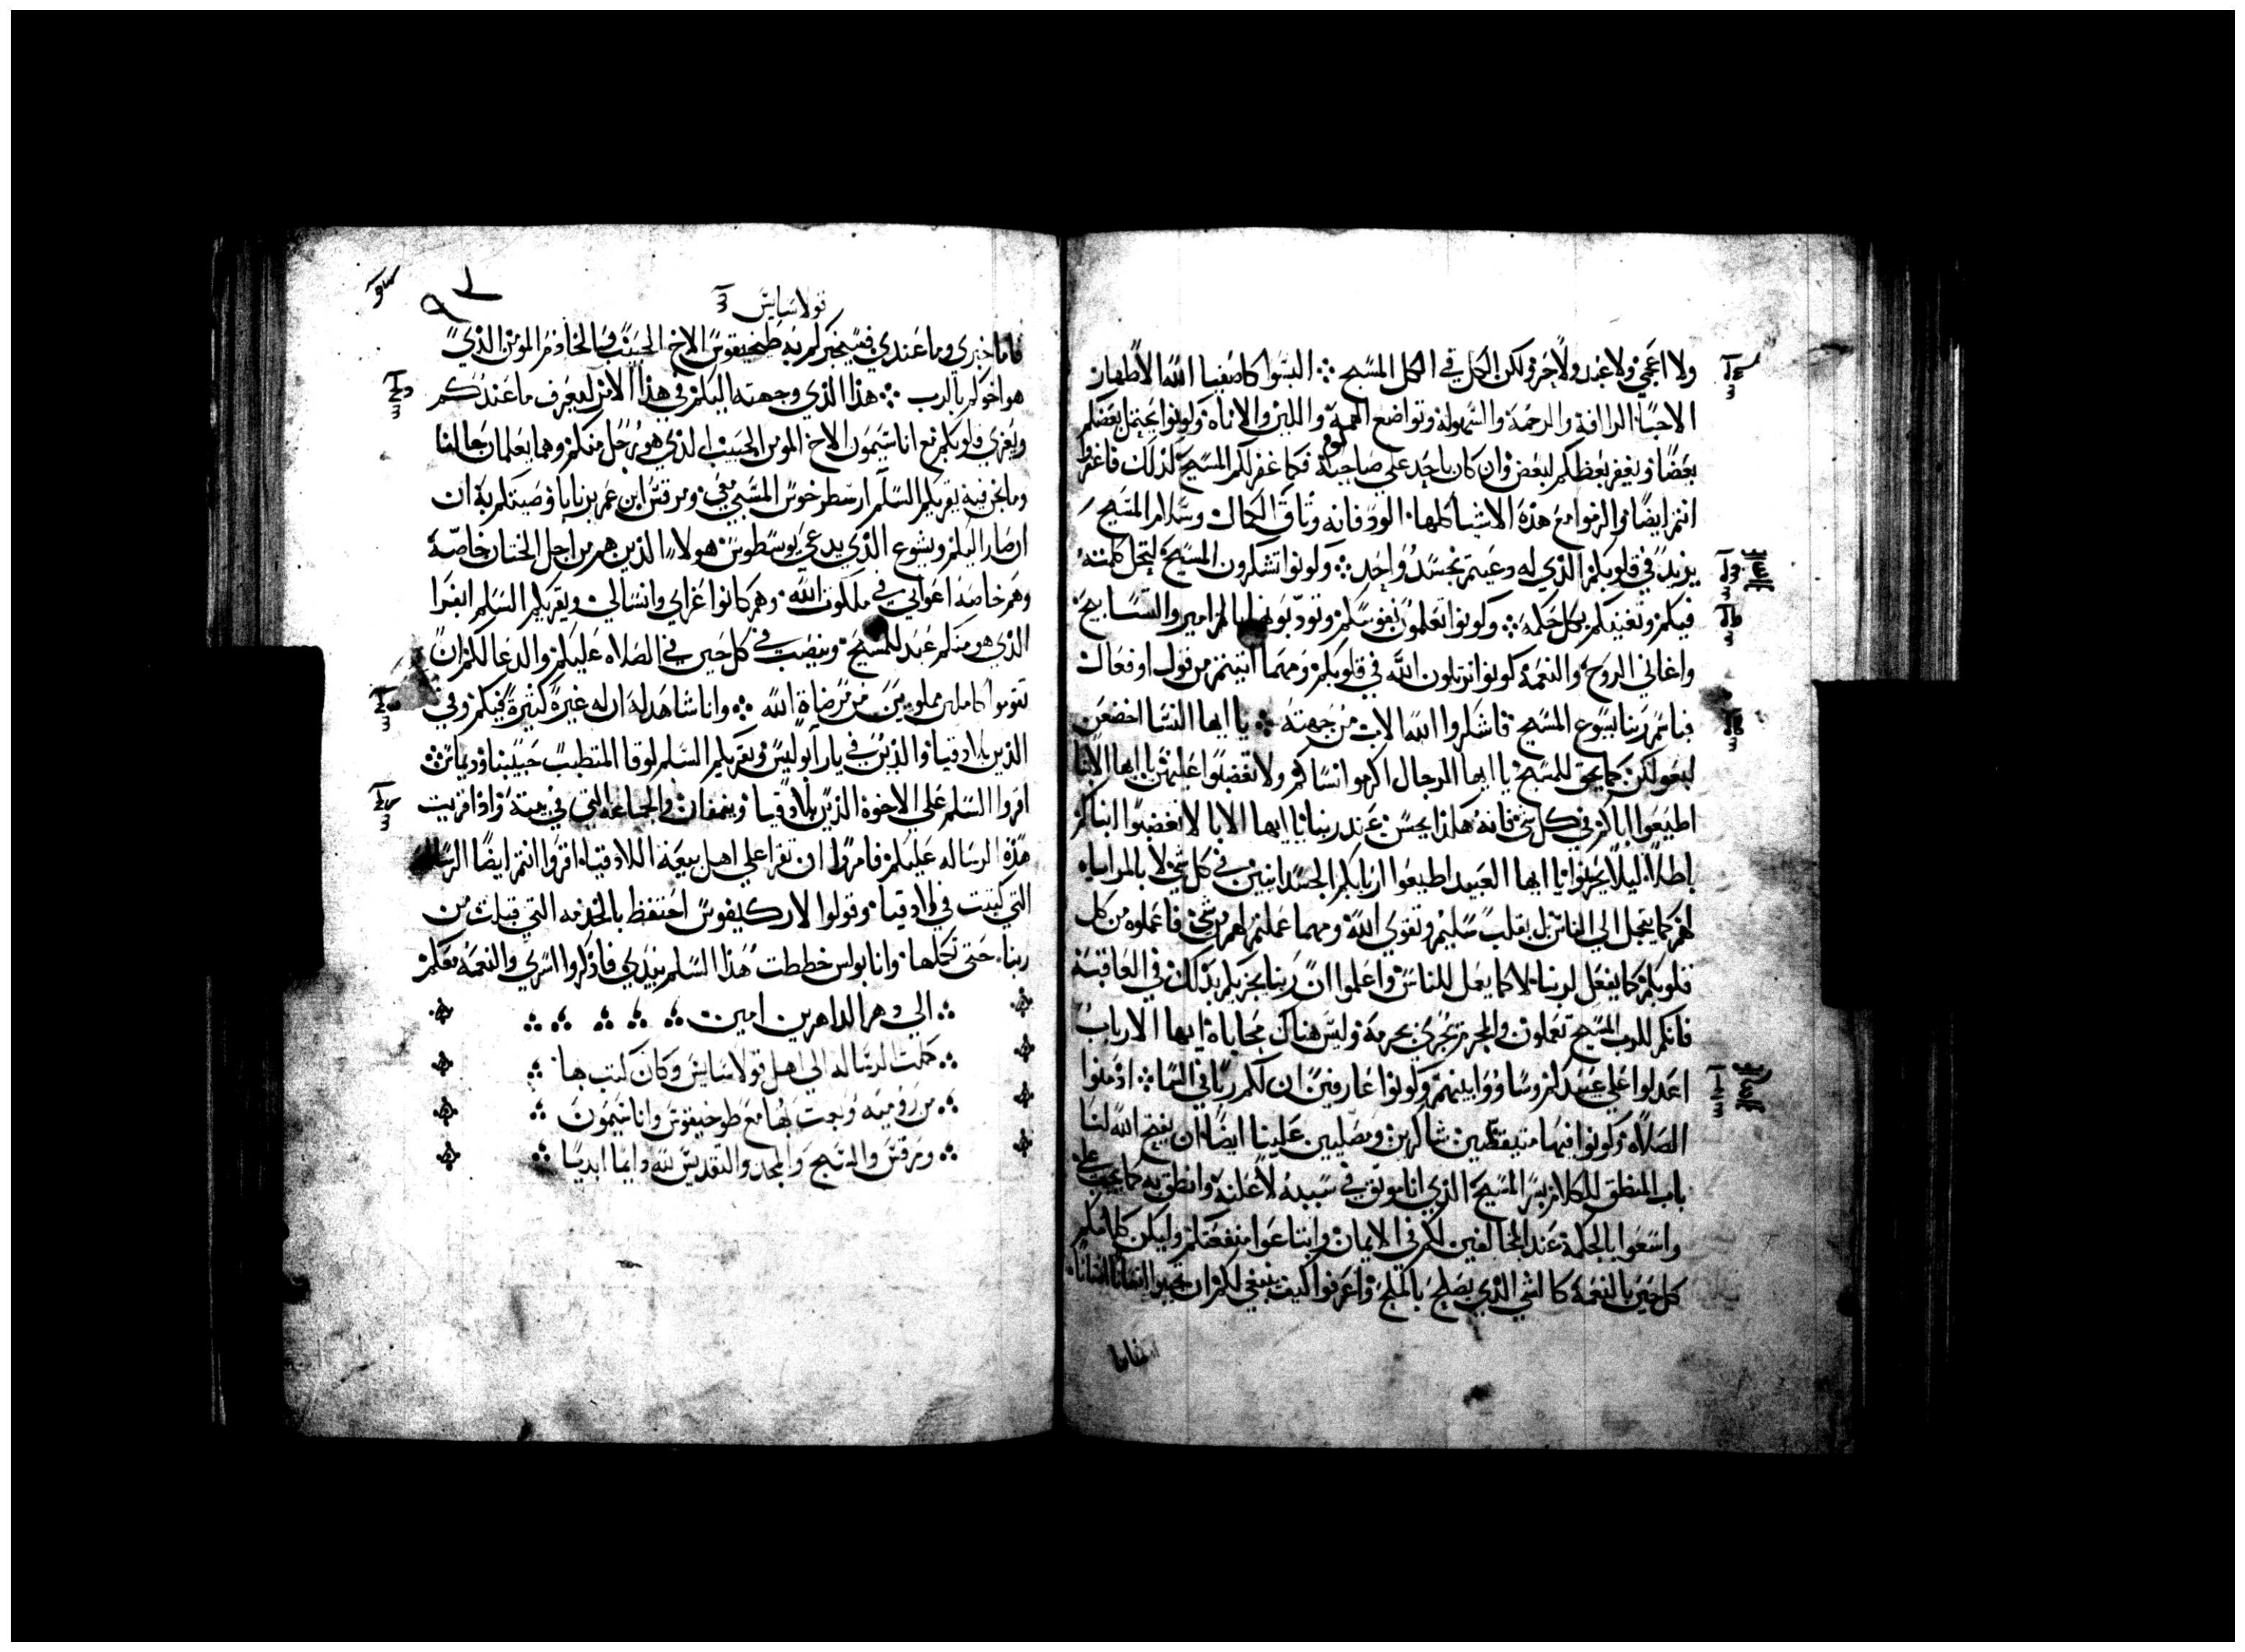 ولا اعجمي ولا عبد ولا حر ولكن الكل في الكل المسيح ⁘ البسوا كاصفيا الله الاطهار
الاحبا الرافة والرحمة والسهولة وتواضع الهمة واللين والاناه وكونوا يحتمل بعضكم
بعضا ويغفر بعظكم لبعض وان كان باحد على صاحبه لوم فكما غفر لكم المسيح كذلك فاغفروا
انتم ايضا والزموا مع هذه الاشيا كلها الود فانه وثاق الكمال وسلام المسيح
يزيد في قلوبكم الذي له دعيتم بجسد واحد ⁘ وكونوا تشكرون المسيح لتحل كلمته
فيكم وتغنيكم بكل حكمه ⁘ وكونوا تعلمون نفوسكم وتودبونها بالمزامير والتسابيح
واغاني الروح والنعمة كونوا ترتلون الله في قلوبكم ومهما اتيتم من قول او فعال
فباسم ربنا يسوع المسيح فاشكروا الله الاب من جهته ⁘ يا ايها النسا اخضعن
لبعولكن كما يحق للمسيح يا ايها الرجال اكرموا نساكم ولا تغضبوا عليهن يا ايها الابنا
اطيعوا اباكم في كل شي فانه هكذا يحسن عند ربنا يا ايها الابا لا تغضبوا ابناكم
باطلا ليلا يحزنوا يا ايها العبيد اطيعوا اربابكم الجسدانيين في كل شي لا بالمراياه
كما يتجمل الي الناس بل بقلب سليم وتقوي الله ومهما عملتم لهم من شي فاعملوه من كل
قلوبكم كما يفعل لربنا لا كما يعمل للناس واعلموا ان ربنا يجزيكم بذلك في العاقبة
فانكم للرب المسيح تعملون والمجرم يجزي بجرمه وليس هناك محاباه ايها الارباب
اعدلوا على عبيدكم وساووا بينهم وكونوا عارفين ان لكم ربا في السما ⁘ ادمنوا
الصلاه وكونوا فيها متيقظين شاكرين ومصليين علينا ايضا ان يفتح الله لنا
باب المنطق للكلام بسر المسيح الذي انا موثق في سببه لاعلنه وانطق به كما يجب علي
واسعوا بالحكمة عند المخالفين لكم في الايمان وابتاعوا منفعتكم وليكن كلامكم
كل حين بالنعمة كالشي الذي يصلح بالملح واعرفوا كيف ينبغي لكم ان تجيبوا انسانا انسانا
قولاسايس
فاما خبري وما عندي فسيخبركم به طخيقوس الاخ الحبيب والخادم المومن الذي
هو اخوكم بالرب ⁘ هذا الذي وجهته اليكم في هذا الامر ليعرف ما عندكم
ويعزي قلوبكم مع اناسيمون الاخ المومن الحبيب الذي هو رجل منكم وهما يعلمانكم حالنا
وما نحن فيه يقريكم السلم ارسطرخوس المسبي معي ومرقس ابن عم برنابا وصيتكم به ان
ارصار اليكم ويشوع الذي يدعي يوسطوس هولاء الذين هم من اجل الختان خاصه
وهم خاصه اعواني في ملكوت الله وهم كانوا عزاي وانسالي ويقريكم السلم ابفرا
الذي هو منكم عبد للمسيح وينصب في كل حين في الصلاه عليكم والدعا لكم ان
تقوموا كاملين مملويين من مرضاة الله ⁘ وانا شاهد له ان له غيرة كثيرة فيكم وفي
الذين بلادقيا والذين في يارابوليس ويقريكم السلم لوقا المتطبب حبيبنا وديماس ⁘
اقروا السلم على الاخوة الذين بلادقيا ونمفان والجماعه التي في بيته واذا قريت
هذة الرساله عليكم فامروا ان تقرا علي اهل بيعة اللادقيا اقروا انتم ايضا الرساله
التي كتبت في لادقيا وقولوا لاركيفوس احتفظ بالخدمه التي قبلت من
ربنا حتى تكملها وانا بولس خططت هذا السلم بيدي فاذكروا اسري والنعمه معكم
⁘ الى دهر الداهرين امين ⁘ ⁘ ⁘ ⁘ ⁘
⁘ كملت الرساله الي اهل قولاسايس وكان كتب بها ⁘
⁘ من روميه وبعث بها مع طوخيقوس واناسيمون ⁘
⁘ ومرقس والسبح والمجد والتقديس لله دايما ابديا ⁘